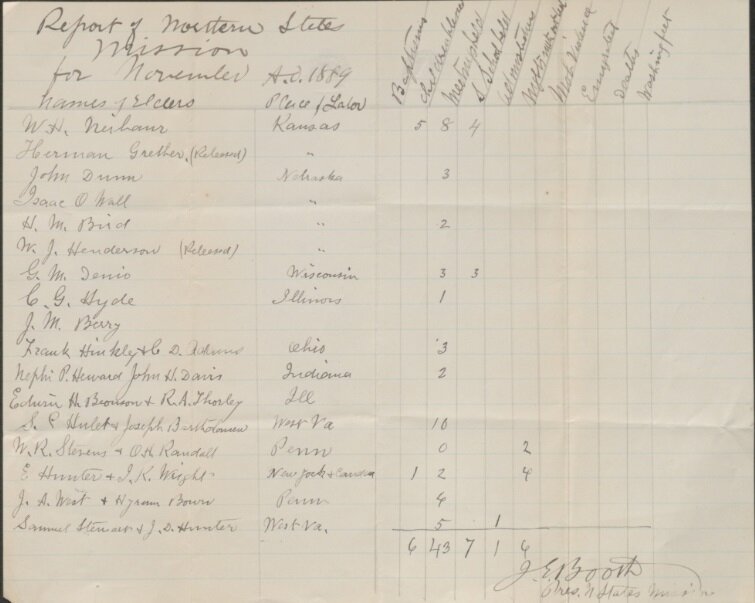 Report of Northern States
Mission
for November A.D. 1889
Names of Elders Place of Labor Baptisms Meetings held S. School held Emigrated Deaths
W. H. Neibaur Kansas 5 8 4
Herman Grether (Released) "
John Dunn Nebraska 3
Isaac O Wall "
H. M. Bird " 2
W. J. Henderson (Released) "
G. M. Denio Wisconsin 3 3
C. G. Hyde Illinois 1
J. M. Berry
Frank Hinkley & C D. Adams Ohio 3
Nephi P. Heward John H. Davis Indiana 2
Edwin H. Bronson & R. A. Thorley Ill
S. E Hulet & Joseph Bartholomew West Va 10
W. R. Stevens & O H. Randall Penn 0 2
E Hunter & J. K. Wright New York & Canada 1 2 4
J. A. West & Hyrum Bown Penn 4
Samuel Stewart & J. D. Hunter West Va. 5 1
6 43 7 1 6
J. E. Booth
Pres. N States Mission